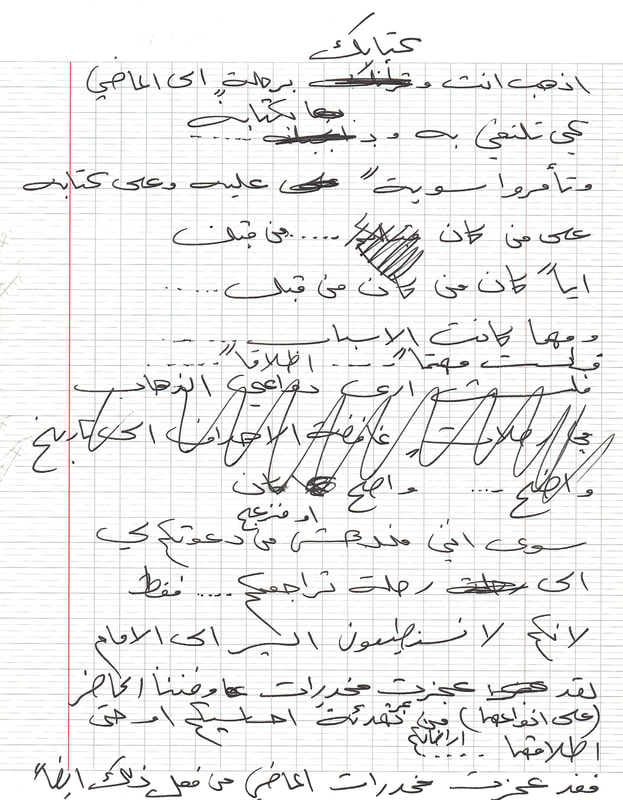 كتابك
اذهب انت و برحلة" الى الماضي
كي تلتقي به و
بكتابة
وتأمروا سوية" عليه وعلى كتابه
على من كان ..... من قبلك
اياً كان من كان من قبلك .....
ومهما كانت الاسباب .....
فلست مهتماً" .... اطلاقاً" .....
فلست ارى دواعي الذهاب
رحلات غامضة الاهداف الى تاريخ
واضح .... واضح كان
او منزعج
سوى انني مندهش من دعوتكم لي
الى رحلة تراجعكم .... فقط
لانكم لا تستطيعون السير الى الامام
لقد عجزت مخدرات حاضرنا الحاضر
(على انواعها) من تهدئة احاسيسكم او حتى
اطلاقها .....
فقد عجزت مخدرات الماضي من فعل ذلك ايضاً"